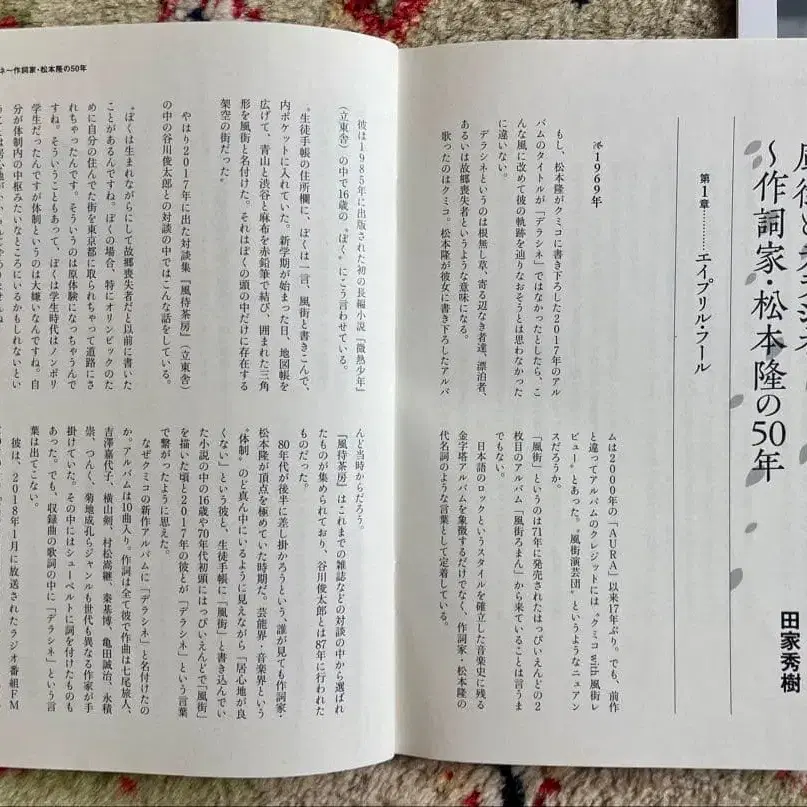 〜作詞家・松本隆の50年
田家秀樹
第1章…………エイプリル・フール
1969年
もし、松本隆がクミコに書き下ろした2017年のアル
バムのタイトルが「デラシネ」ではなかったとしたら、こ
んな風に改めて彼の軌跡を辿りなおそうとは思わなかった
に違いない。
デラシネというのは根無し草、寄る辺なき者達、漂泊者、
あるいは故郷喪失者というような意味になる。
歌ったのはクミコ。松本隆が彼女に書き下ろしたアルバ
ムは2000年の「AURA」以来17年ぶり。でも、前作
と違ってアルバムのクレジットには〝クミコ with 風街レ
ビュー〟とあった。〝風街演芸団〟というようなニュアン
スだろうか。
「風街」というのは71年に発売されたはっぴいえんどの2
枚目のアルバム「風街ろまん」から来ていることは言うま
でもない。
日本語のロックというスタイルを確立した音楽史に残る
金字塔アルバムを象徴するだけでなく、作詞家・松本隆の
代名詞のような言葉として定着している。
ネ〜作詞家・松本隆の50年
彼は1985年に出版された初の長編小説『微熱少年』
(立東舎)の中で16歳の〝ぼく〟にこう言わせている。
〝生徒手帳の住所欄に、ぼくは一言、風街と書きこんで、
内ポケットに入れていた。新学期が始まった日、地図帳を
広げて、青山と渋谷と麻布を赤鉛筆で結び、囲まれた三角
形を風街と名付けた。それはぼくの頭の中だけに存在する
架空の街だった〟
やはり2017年に出た対談集『風待茶房』(立東舎)
の中の谷川俊太郎との対談の中ではこんな話をしている。
〝ぼくは生まれながらにして故郷喪失者だと以前に書いた
ことがあるんですね。ぼくの場合、特にオリンピックのた
めに自分の住んでた街を東京都に取られちゃって道路にさ
れちゃったんです。そういうのは原体験になっちゃうんで
すね。そういうこともあって、ぼくは学生時代はノンポリ
学生だったんですが体制というのは大嫌いなんですね。自
分が体制内の中枢みたいなところにいるかもしれないとい
んど当時からだろう。
『風待茶房』はこれまでの雑誌などの対談の中から選ばれ
たものが集められており、谷川俊太郎とは87年に行われた
ものだった。
80年代が後半に差し掛かろうという、誰が見ても作詞家・
松本隆が頂点を極めていた時期だ。芸能界・音楽界という
〝体制〟のど真ん中にいるように見えながら「居心地が良
くない」という彼と、生徒手帳に「風街」と書き込んでい
た小説の中の16歳や70年代初頭にはっぴいえんどで「風街」
を描いた頃と2017年の彼とが「デラシネ」という言葉
で繋がったように思えた。
なぜクミコの新作アルバムに「デラシネ」と名付けたの
か。アルバムは10曲入り。作詞は全て彼で作曲は七尾旅人、
吉澤嘉代子、横山剣、村松崇継、秦基博、亀田誠治、永積
崇、つんく、菊地成孔らジャンルも世代も異なる作家が手
掛けていた。その中にはシューベルトに詞を付けたものも
あった。でも、収録曲の歌詞の中に「デラシネ」という言
葉は出てこない。
彼は、2018年1月に放送されたラジオ番組FM